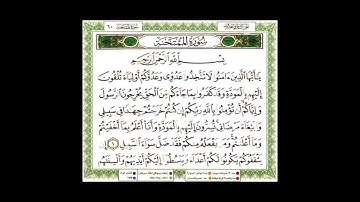 سُورَةُ الْمُمْتَحَنَةِ
بِسْمِ اللَّهِ الرَّحْمَٰنِ الرَّحِيمِ
يَا أَيُّهَا الَّذِينَ آمَنُوا لَا تَتَّخِذُوا عَدُوِّي وَعَدُوَّكُمْ أَوْلِيَاءَ تُلْقُونَ
إِلَيْهِم بِالْمَوَدَّةِ وَقَدْ كَفَرُوا بِمَا جَاءَكُم مِّنَ الْحَقِّ يُخْرِجُونَ الرَّسُولَ
وَإِيَّاكُمْ أَن تُؤْمِنُوا بِاللَّهِ رَبِّكُمْ إِن كُنتُمْ خَرَجْتُمْ جِهَادًا فِي سَبِيلِي
وَابْتِغَاءَ مَرْضَاتِي تُسِرُّونَ إِلَيْهِم بِالْمَوَدَّةِ وَأَنَا أَعْلَمُ بِمَا أَخْفَيْتُمْ
وَمَا أَعْلَنتُمْ وَمَن يَفْعَلْهُ مِنكُمْ فَقَدْ ضَلَّ سَوَاءَ السَّبِيلِ ١ إِن
يَثْقَفُوكُمْ يَكُونُوا لَكُمْ أَعْدَاءً وَيَبْسُطُوا إِلَيْكُمْ أَيْدِيَهُمْ وَأَلْسِنَتَهُم